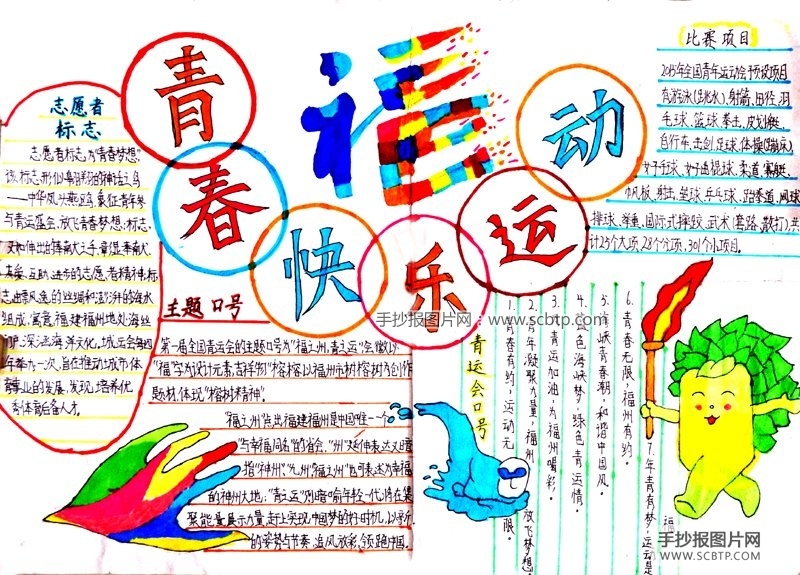 青春快乐运动
福
志愿者
标志
志愿者标志为“青春梦想”
该标志形似朝翔的神话之鸟
——中华凤头燕鸥,象征青年参
与青运盛会,放飞青春梦想;标志,
又如伸出的臻南大之手,
真挚、互助、进步的志愿者精神,标
志由乘风逸的丝绸和澎湃的海水
组成,寓意,福建福州地处海丝
海洋文化。城运会每四
年举办一次,旨在推动城市体
育事业的发展,发现、培养优
秀体育后备人才。
比赛项目
2015年全国青年运动会预设项目
有游泳(跳水)、射箭、田径、羽
毛球、篮球、拳击、皮划艇、
自行车、击剑、足球、体操(蹦床)
女子手球、女子曲棍球、柔道、赛艇、
帆板、射击、垒球、乒乓球、跆拳道、网球
排球、举重、国际式摔跤、武术(套路、散打)共
计23个大项,28个分项,301个小项目。
主题口号
第一届全国青运会的主题口号为“福之州,青之运”会徽以
“福”字为设计元素,吉祥物“榕榕”以福州市树榕树为创作
题材,体现“榕树精神”。
“福之州”点出福建福州是中国唯一个
与幸福同名的省会,“州”延伸表达又暗
指“神州”、“九州”“福之州”也可表达为幸福
的神州大地;“青之运”则暗喻年轻一代,将在集
聚能量,展示力量,赶上实现中国梦的好时机,以崭新
的姿势与节奏,追风放彩,领跑中国。
青运会口号
1.青春有约,运动无限。
2.年凝聚力量,福州放飞梦想
3.青运加油,为福州喝彩。
4.蓝色海峡梦,绿色青运情。
5.海峡青春潮,和谐中国风。
6.青春无限,福州有约。
7.年青有梦,运动是
福
手抄报图片网:www.scbtp.com
手抄报图片网
WWW.SCBTP.COM
手抄报图片网
WWW.SCBTP.COM